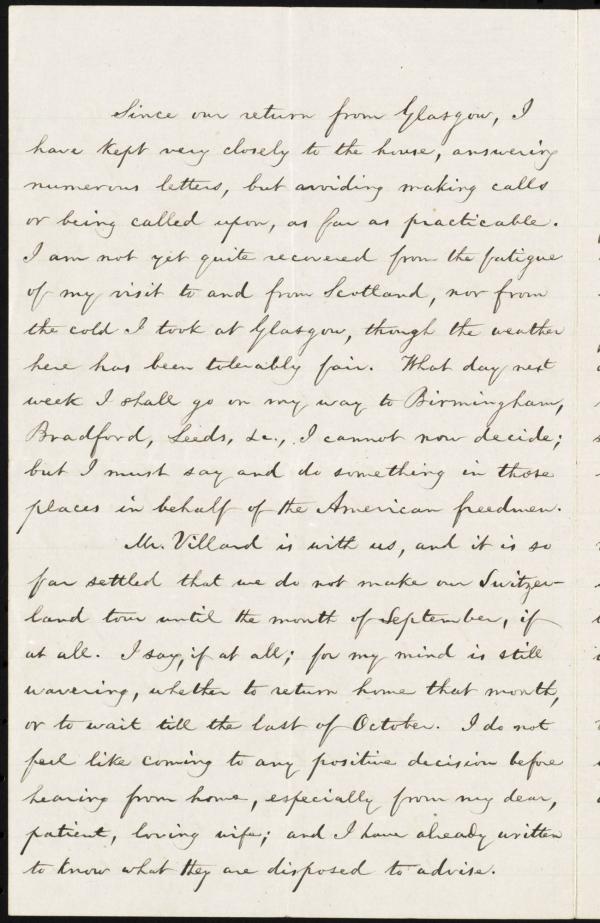 Since our return from Glasgow, I
have kept very closely to the house, answering
numerous letters, but avoiding making calls
or being called upon, as far as practicable.
I am not yet quite recovered from the fatigue
of my visit to and from Scotland, nor from
the cold I took at Glasgow, though the weather
here has been tolerably fair. What day next
week I shall go on my way to Birmingham,
Bradford, Leeds, &c., I cannot now decide;
but I must say and do something in those
places in behalf of the American freedmen.
Mr. Villard is with us, and it is so
far settled that we do not make our Switzer-
land tour until the month of September, if
at all. I say, if at all; for my mind is still
wavering, whether to return home that month,
or to wait till the last of October. I do not
feel like coming to any positive decision before
hearing from home, especially from my dear,
patient, loving wife; and I have already written
to know what they are disposed to advise.